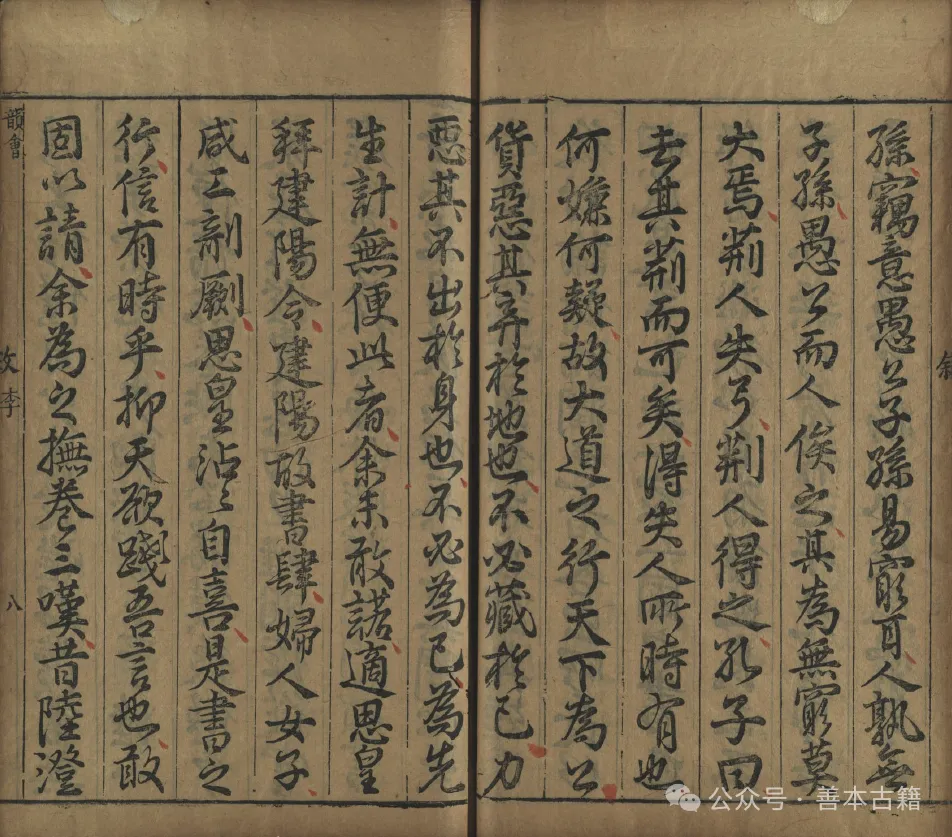 孫竊意愚公子孫易窮耳人孰無
子孫愚公而人俟之其為無窮莫
大焉荆人失弓荆人得之孔子曰
去其荊而可矣得失人所時有也
何嫌何疑故大道之行天下為公
貨惡其弃於地也不必藏於己力
惡其不出於身也不必為己為先
生計無便此者余未敢諾適思皇
拜建陽令建陽故書肆婦人女子
咸工剞劂思皇沾〻自喜是書之
行信有時乎抑天欲踐吾言也敢
固以請余為之撫卷三嘆昔陸澄
韻會
李
八
公众号 · 善本古籍